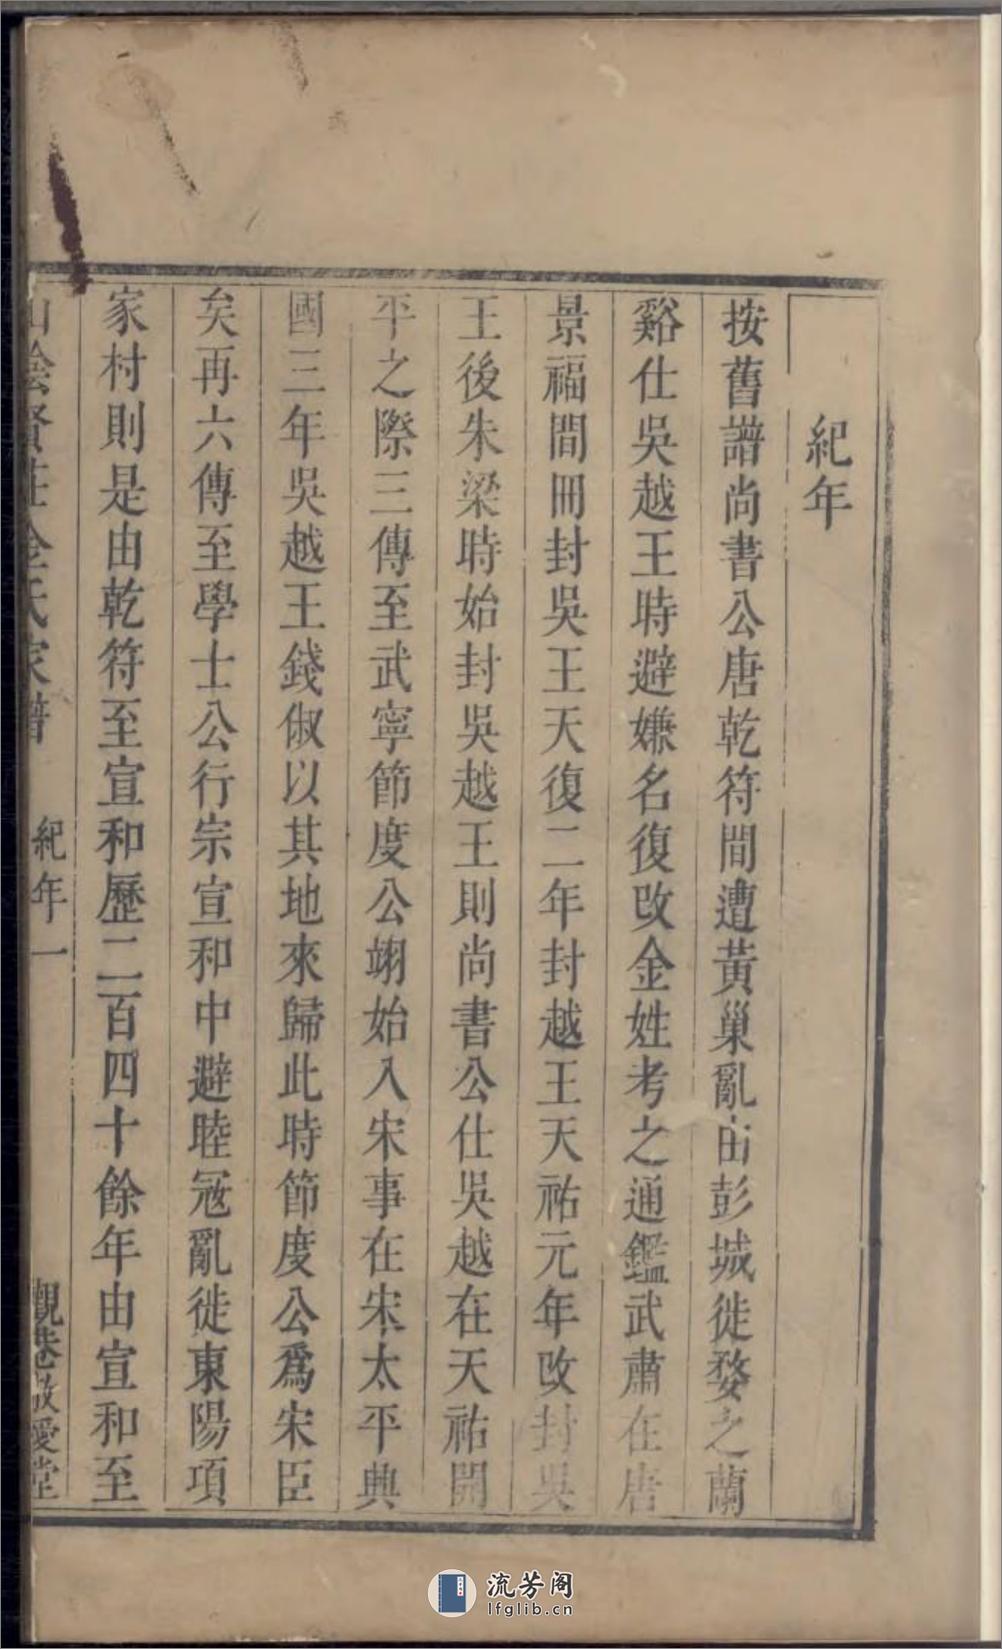 紀年
按舊譜尚書公唐乾符間遭黃巢亂由彭城徙婺之蘭
谿仕吳越王時避嫌名復改金姓考之通鑑武肅在唐
景福間冊封吳王天復二年封越王天祐元年改封吳
王後朱梁時始封吳越王則尚書公仕吳越在天祐開
平之際三傳至武寧節度公翊始入宋事在宋太平典
國三年吳越王錢俶以其地來歸此時節度公爲宋臣
矣再六傳至學士公行宗宣和中避睦冦亂徙東陽項
家村則是由乾符至宣和歷二百四十餘年由宣和至
山陰賢莊金氏家譜
紀年一
觀巷敬愛堂
流芳阁
lfglib.cn